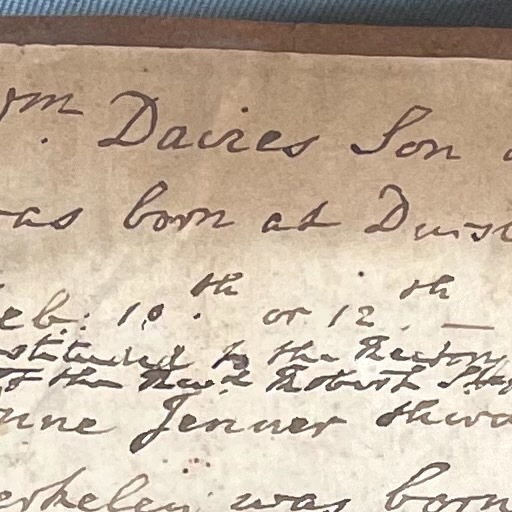 Wm. Davies Son
was born at Durs
Feb: 10.th or 12.th —
instituted to the Rectory
of the Revd. Robert
Anne Jenner
Berkeley was born